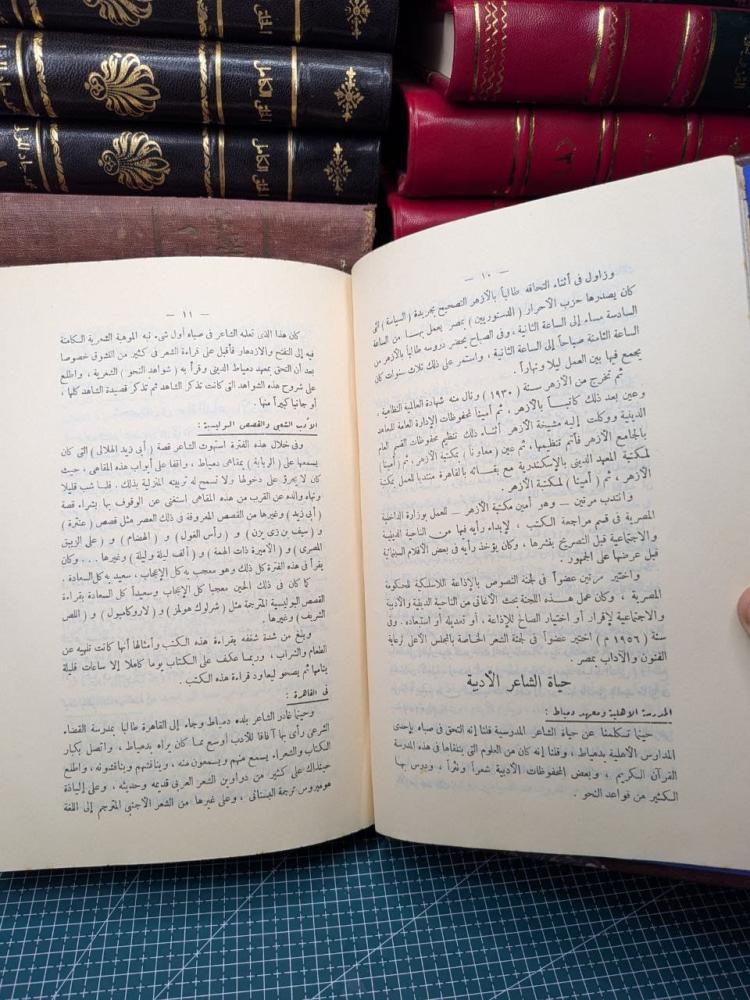 — ١٠ —
وزاول فى أثناء التحاقه طالباً بالأزهر التصحيح بجريدة ( السياسة ) التى
كان يصدرها حزب الأحرار ( الدستوريين ) بمصر يعمل بهـا من الساعة
السادسة مساء إلى الساعة الثانية ، وفى الصباح يحضر دروسه طالباً بالأزهر من
الساعة الثامنة صباحاً إلى الساعة الثانية ، واستمر على ذلك ثلاث سنوات كان
يجمع فيها بين العمل ليلا ونهاراً .
ثم تخرج من الأزهر سنة ( ١٩٣٠ ) ونال منه شهادة العالمية النظامية .
وعين بعد ذلك كاتبـاً بالأزهر ، ثم أمينا لمحفوظات الإدارة العامة للمعاهد
الدينية ووكلت إليه مشيخة الأزهر أثناء ذلك تنظيم محفوظات القسم العام
بالجامع الأزهر فأتم تنظيمها ، ثم عين ( معاوناً ) بمكتبة الأزهر ، ثم ( أميناً )
لمكتبة المعهد الدينى بالإسكندرية مع بقـائه بالقاهرة منتدبا للعمل بمكتبة
الأزهر ، ثم ( أمينا ) لمكتبة الأزهر .
وانتدب مرتين — وهو أمين مكتبة الأزهر — للعمل بوزارة الداخلية
المصرية فى قسم مراجعة الكتب ، لإبداء رأيه فيها من الناحية الدينية
والاجتماعية قبل التصريح بنشرها ، وكان يؤخذ رأيه فى بعض الأفلام السينمائية
قبل عرضها على الجمهور .
واختير مرتين عضواً فى لجنة النصوص بالإذاعة اللاسلكية للحكومة
المصرية ، وكان عمل هـذه اللجنة بحث الأغانى من الناحية الدينية والأدبية
والاجتماعية لإقرار أو اختيار الصالح للإذاعة ، أو تعديله أو استبعاده . وفى
سنة ( ١٩٥٦ م ) اختير عضواً فى لجنة الشعر الخاصة بالمجلس الأعلى لرعاية
الفنون والآداب بمصر .
حياة الشاعر الأدبية
المدرسة الاهلية ومعهد دمياط :
حينما تكلمنا عن حياة الشاعر المدرسية قلنا إنه التحق فى صباه بإحدى
المدارس الأهلية بدمياط ، وقلنا إنه كان من العلوم التى يتلقاها فى هذه المدرسة
القرآن الكريم ، وبعض المحفوظات الأدبية شعراً ونثراً ، ودرس بهـا
الكثير من قواعد النحو .
— ١١ —
كان هذا الذى تعلمه الشاعر فى صباه أول شىء نبه الموهبة الشعرية الكامنة
فيه إلى التفتح والازدهار فأقبل على قراءة الشعر فى كثير من الشوق خصوصا
بعد أن التحق بمعهد دمياط الدينى وقرأ به ( شواهد النحو ) الشعرية ، واطلع
على شروح هذه الشواهد التى كانت تذكر الشاهد ثم تذكر قصيدة الشاهد كلها ،
أو جانبا كبيراً منها .
الأدب الشعبى والقصص البوليسية :
وفى خلال هذه الفترة استهوت الشاعر قصة ( أبى زيد الهلالى ) التى كان
يسمعها على ( الربابة ) بمقاهى دمياط ، واقفا على أبواب هذه المقاهى ، حيث
كان لا يجرؤ على دخولها ولا تسمح له تربيته المنزلية بذلك . فلما شب قليلا
ونهاه والده عن القرب من هذه المقاهى استغنى عن الوقوف بها بشراء قصة
( أبى زيد ) وغيرها من القصص المعروفة فى ذلك العصر مثل قصص ( عنترة )
و ( سيف بن ذى يزن ) و ( رأس الغول ) و ( الهضام ) و ( على الزيبق
المصرى ) و ( الأميرة ذات الهمة ) و ( ألف ليلة وليلة ) وغيرها . . . وكان
يقرأ فى هذه الفترة كل ذلك وهو معجب به كل الإعجاب ، سعيد به كل السعادة .
كما كان فى ذلك الحين معجبا كل الإعجاب وسعيداً كل السعادة بقراءة
القصص البوليسية المترجمة مثل ( شرلوك هولمز ) و ( لاروكامبول ) و ( اللص
الشريف ) وغيرها .
وبلغ من شدة شغفه بقراءة هذه الكتب وأمثالها أنها كانت تلهيه عن
الطعام والشراب ، وربما عكف على الكتاب يوما كاملا إلا ساعات قليلة
ينامها ثم يصحو ليعاود قراءة هذه الكتب .
فى القاهرة :
وحينما غادر الشاعر بلده دمياط وجاء إلى القاهرة طالبا بمدرسة القضاء
الشرعى رأى بها آفاقا للأدب أوسع مما كان يراه بدمياط ، واتصل بكبار
الكتاب والشعراء . يسمع منهم ويسمعون منه ، ويناقشهم ويناقشونه ، واطلع
حينذاك على كثير من دواوين الشعر العربى قديمه وحديثه ، وعلى إلياذة
هوميروس ترجمة البستانى ، وعلى غيرها من الشعر الأجنبى المترجم إلى اللغة